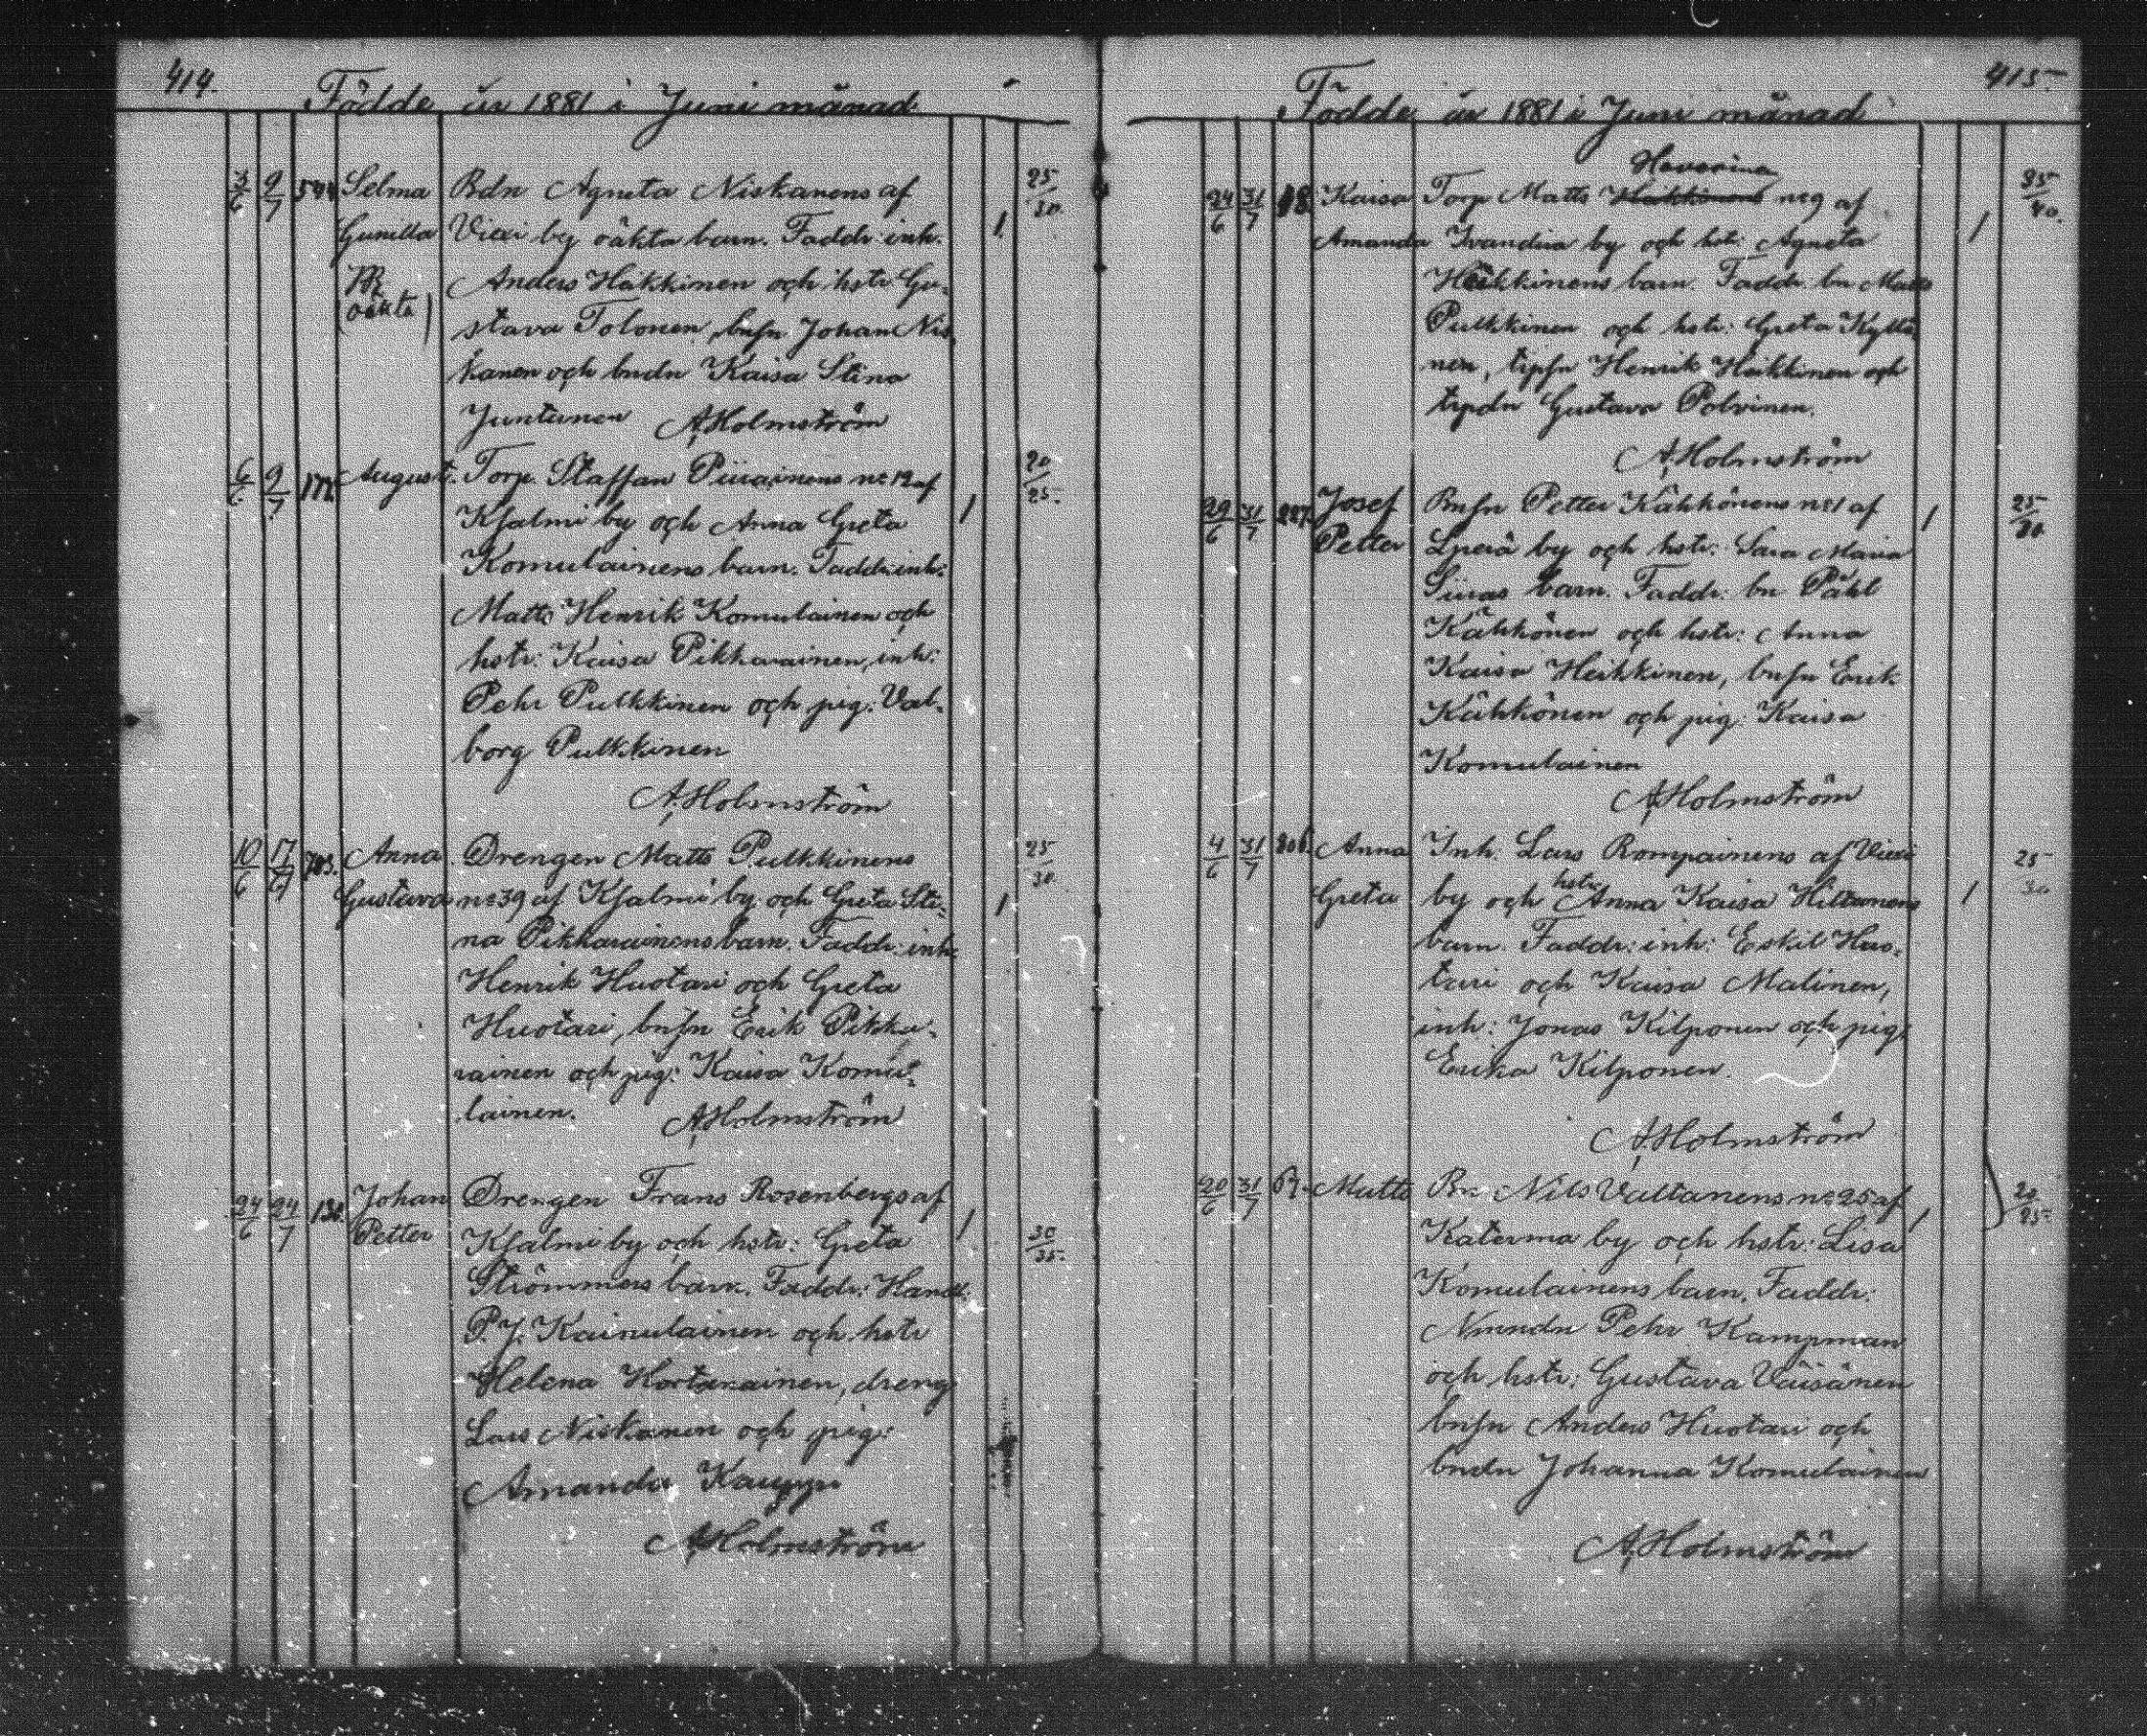 414.
Födde år 1881 i Juni månad.
3/6 9/7 Selma Bdn Agneta Niskanens af 25/30.
Gunilla Viexi by oäkta barn. Faddr: inh. 1
Anders Häkkinen och hstr Gu-
(oäkta) stava Tolonen, bnsn Johan Nis
kanen och bndn Kaisa Stina
Juntunen AHolmström
6/6 9/7 172 August. Torp. Staffan Piirainens no 12 af 20/25.
Ksalmi by och Anna Greta 1
Komulainens barn. Faddr: inh:
Matts Henrik Komulainen och
hstr: Kaisa Pikkarainen, inh:
Pehr Pulkkinen och pig. Val-
borg Pulkkinen
AHolmström
10/6 17/6 703. Anna Drengen Matts Pulkkinens 25/30.
Gustava no 39 af Ksalmi by och Greta Sti- 1
na Pikkarainens barn. Faddr: inh:
Henrik Huotari och Greta
Huotari, bnsn Erik Pikka-
rainen och pig: Kaisa Komu-
lainen. AHolmström
24/6 24/7 Johan Drengen Frans Rosenbergs af 1
Petter Ksalmi by och hstr: Greta 30/35.
Strömmers barn. Faddr: Handl.
P. J. Kainulainen och hstr
Helena Kortelainen, dreng
Lars Niskanen och pig:
Amanda Kauppi
AHolmström
415.
Födde år 1881 i Juni månad
Hoverinen
24/6 31/7 18 Kaisa Torp Matts Häkkinens no 9 af 35/40.
Amanda Ivandira by och hstr: Agneta 1
Heikkinens barn. Faddr. bn Matts
Pulkkinen och hstr: Greta Kyllö
nen, trpsn Henrik Heikkinen och
trpdn Gustava Polvinen.
AHolmström
29/6 31/7 227. Josef Bnsn Petter Kähkönens no 1 af 1 25/30
Petter Lperä by och hstr: Sara Maria
Siiras barn. Faddr: bn Påhl
Kähkönen och hstr: Anna
Kaisa Heikkinen, bnsn Erik
Kähkönen och pig: Kaisa
Komulainen
AHolmström
4/6 31/7 206. Anna Inh. Lars Rompainens af Viexi 25
hstr
Greta by och Anna Kaisa Hiltunens 1 30
barn. Faddr: inh: Eskil Huo-
tari och Kaisa Malinen,
inh: Jonas Kilponen och pig:
Erika Kilponen.
AHolmström
20/6 31/7 Matts Bn Nils Valtanens no 25 af 1 20/25.
Katerma by och hstr: Lisa
Komulainens barn. Faddr:
Nmndn Pehr Kampman
och hstr: Gustava Väisänen
bnsn Anders Huotari och
bndn Johanna Komulainen
AHolmström